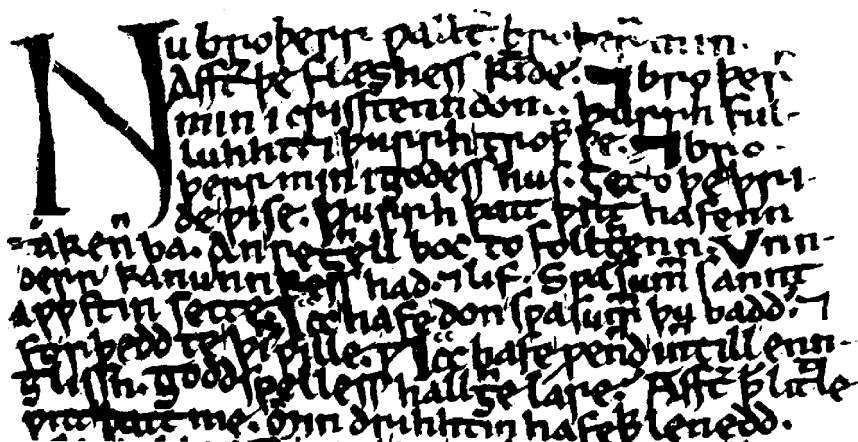 Nu broþerr wallt̄. broþerr min.
Afft̄ þe flæshess kīde. ⁊ broþerr
min i crisstenndom. þurrh ful-
luhht. ⁊ þurrh trowwþe. ⁊ bro-
þerr min i godess hus. ȝēt o þe þri-
de wise. þurrh þatt witt hafenn
tākeñ ba. An reȝhell boc to follȝhenn. Unn-
derr kanunnkess had. ⁊ lif. Swa sum̄ sannt
awwstin sette. Icc hafe don swa sum̄ þu badd. ⁊
forþedd te þin wille. Icc hafe wennd inntill enn-
glissh. goddspelless hallȝhe lare. Afft̄ þatt little
witt þatt me. min drihhtin hafeþþ lenedd.